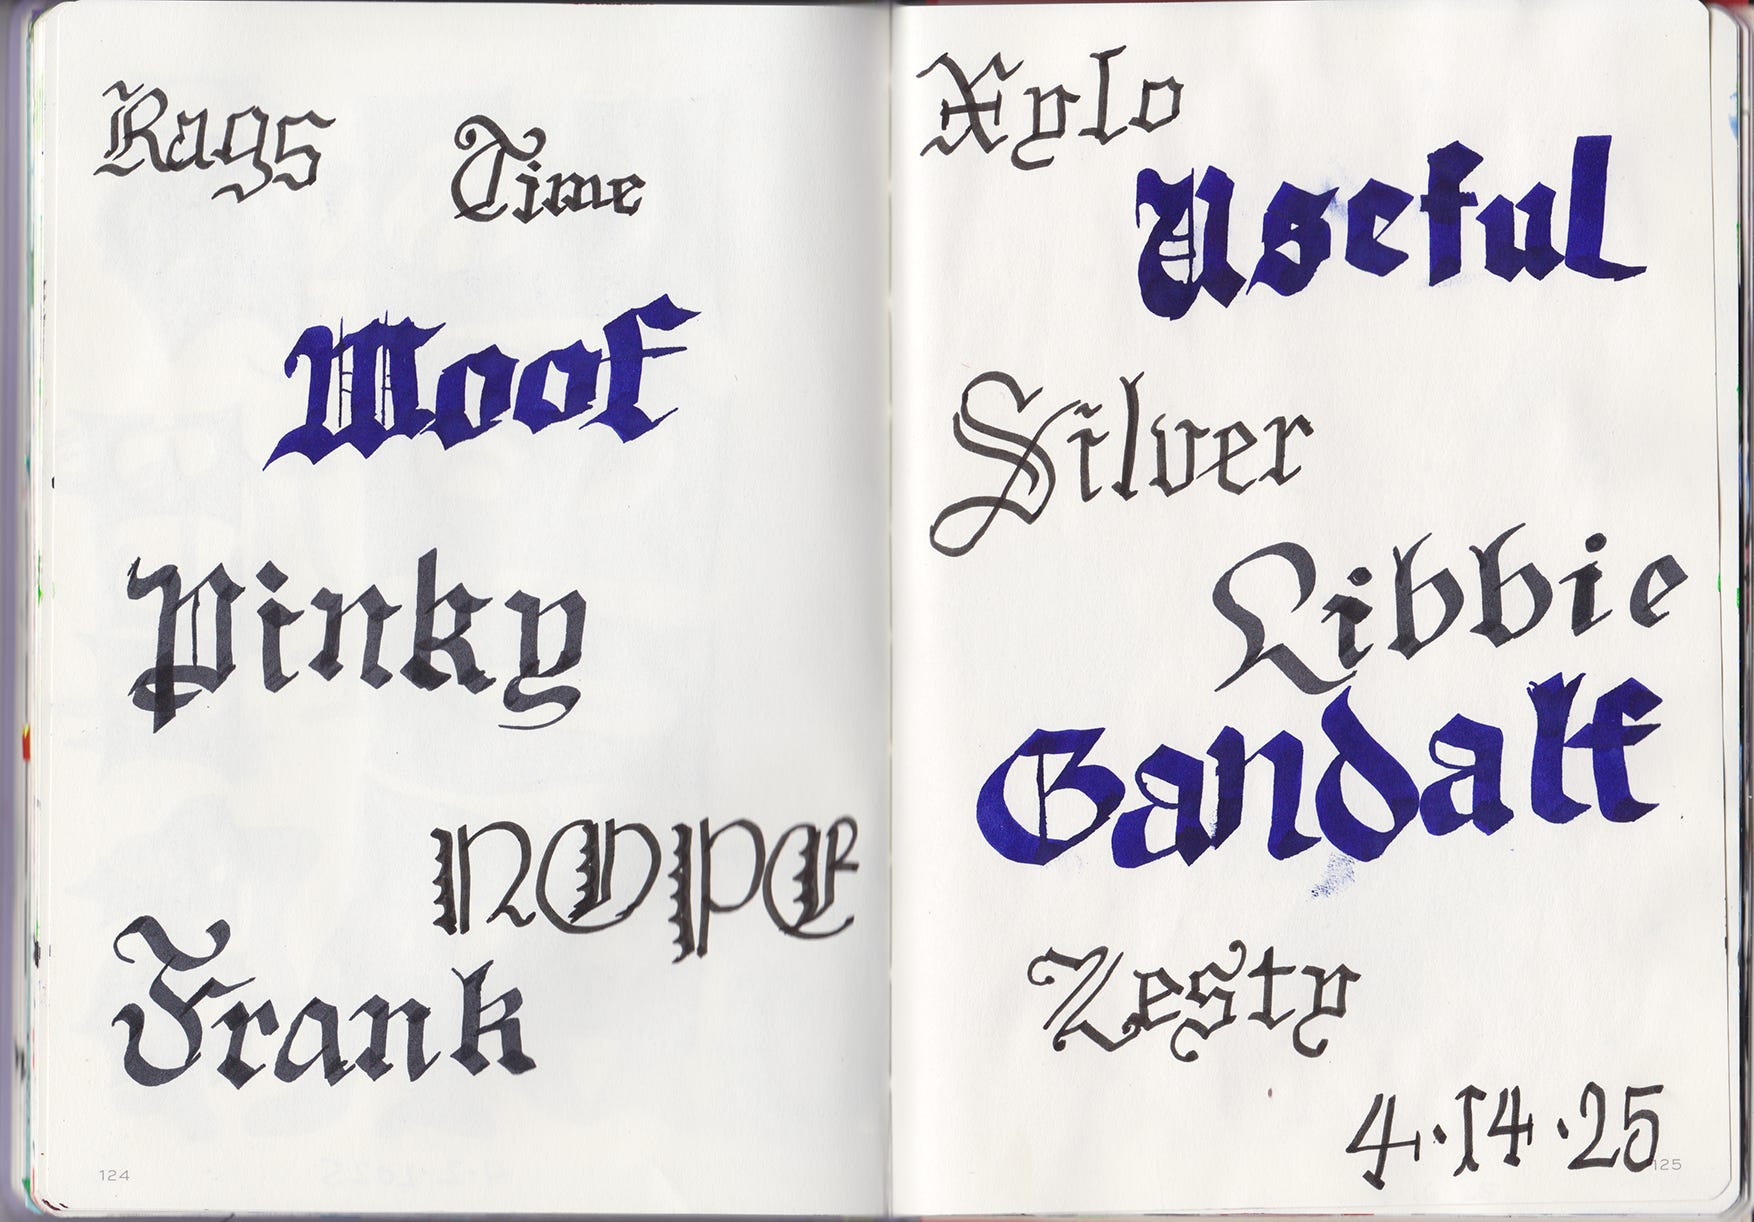 Rags
Time
Woof
Pinky
NOPE
Frank
124
Xylo
Useful
Silver
Libbie
Gandalf
Zesty
4·14·25
125